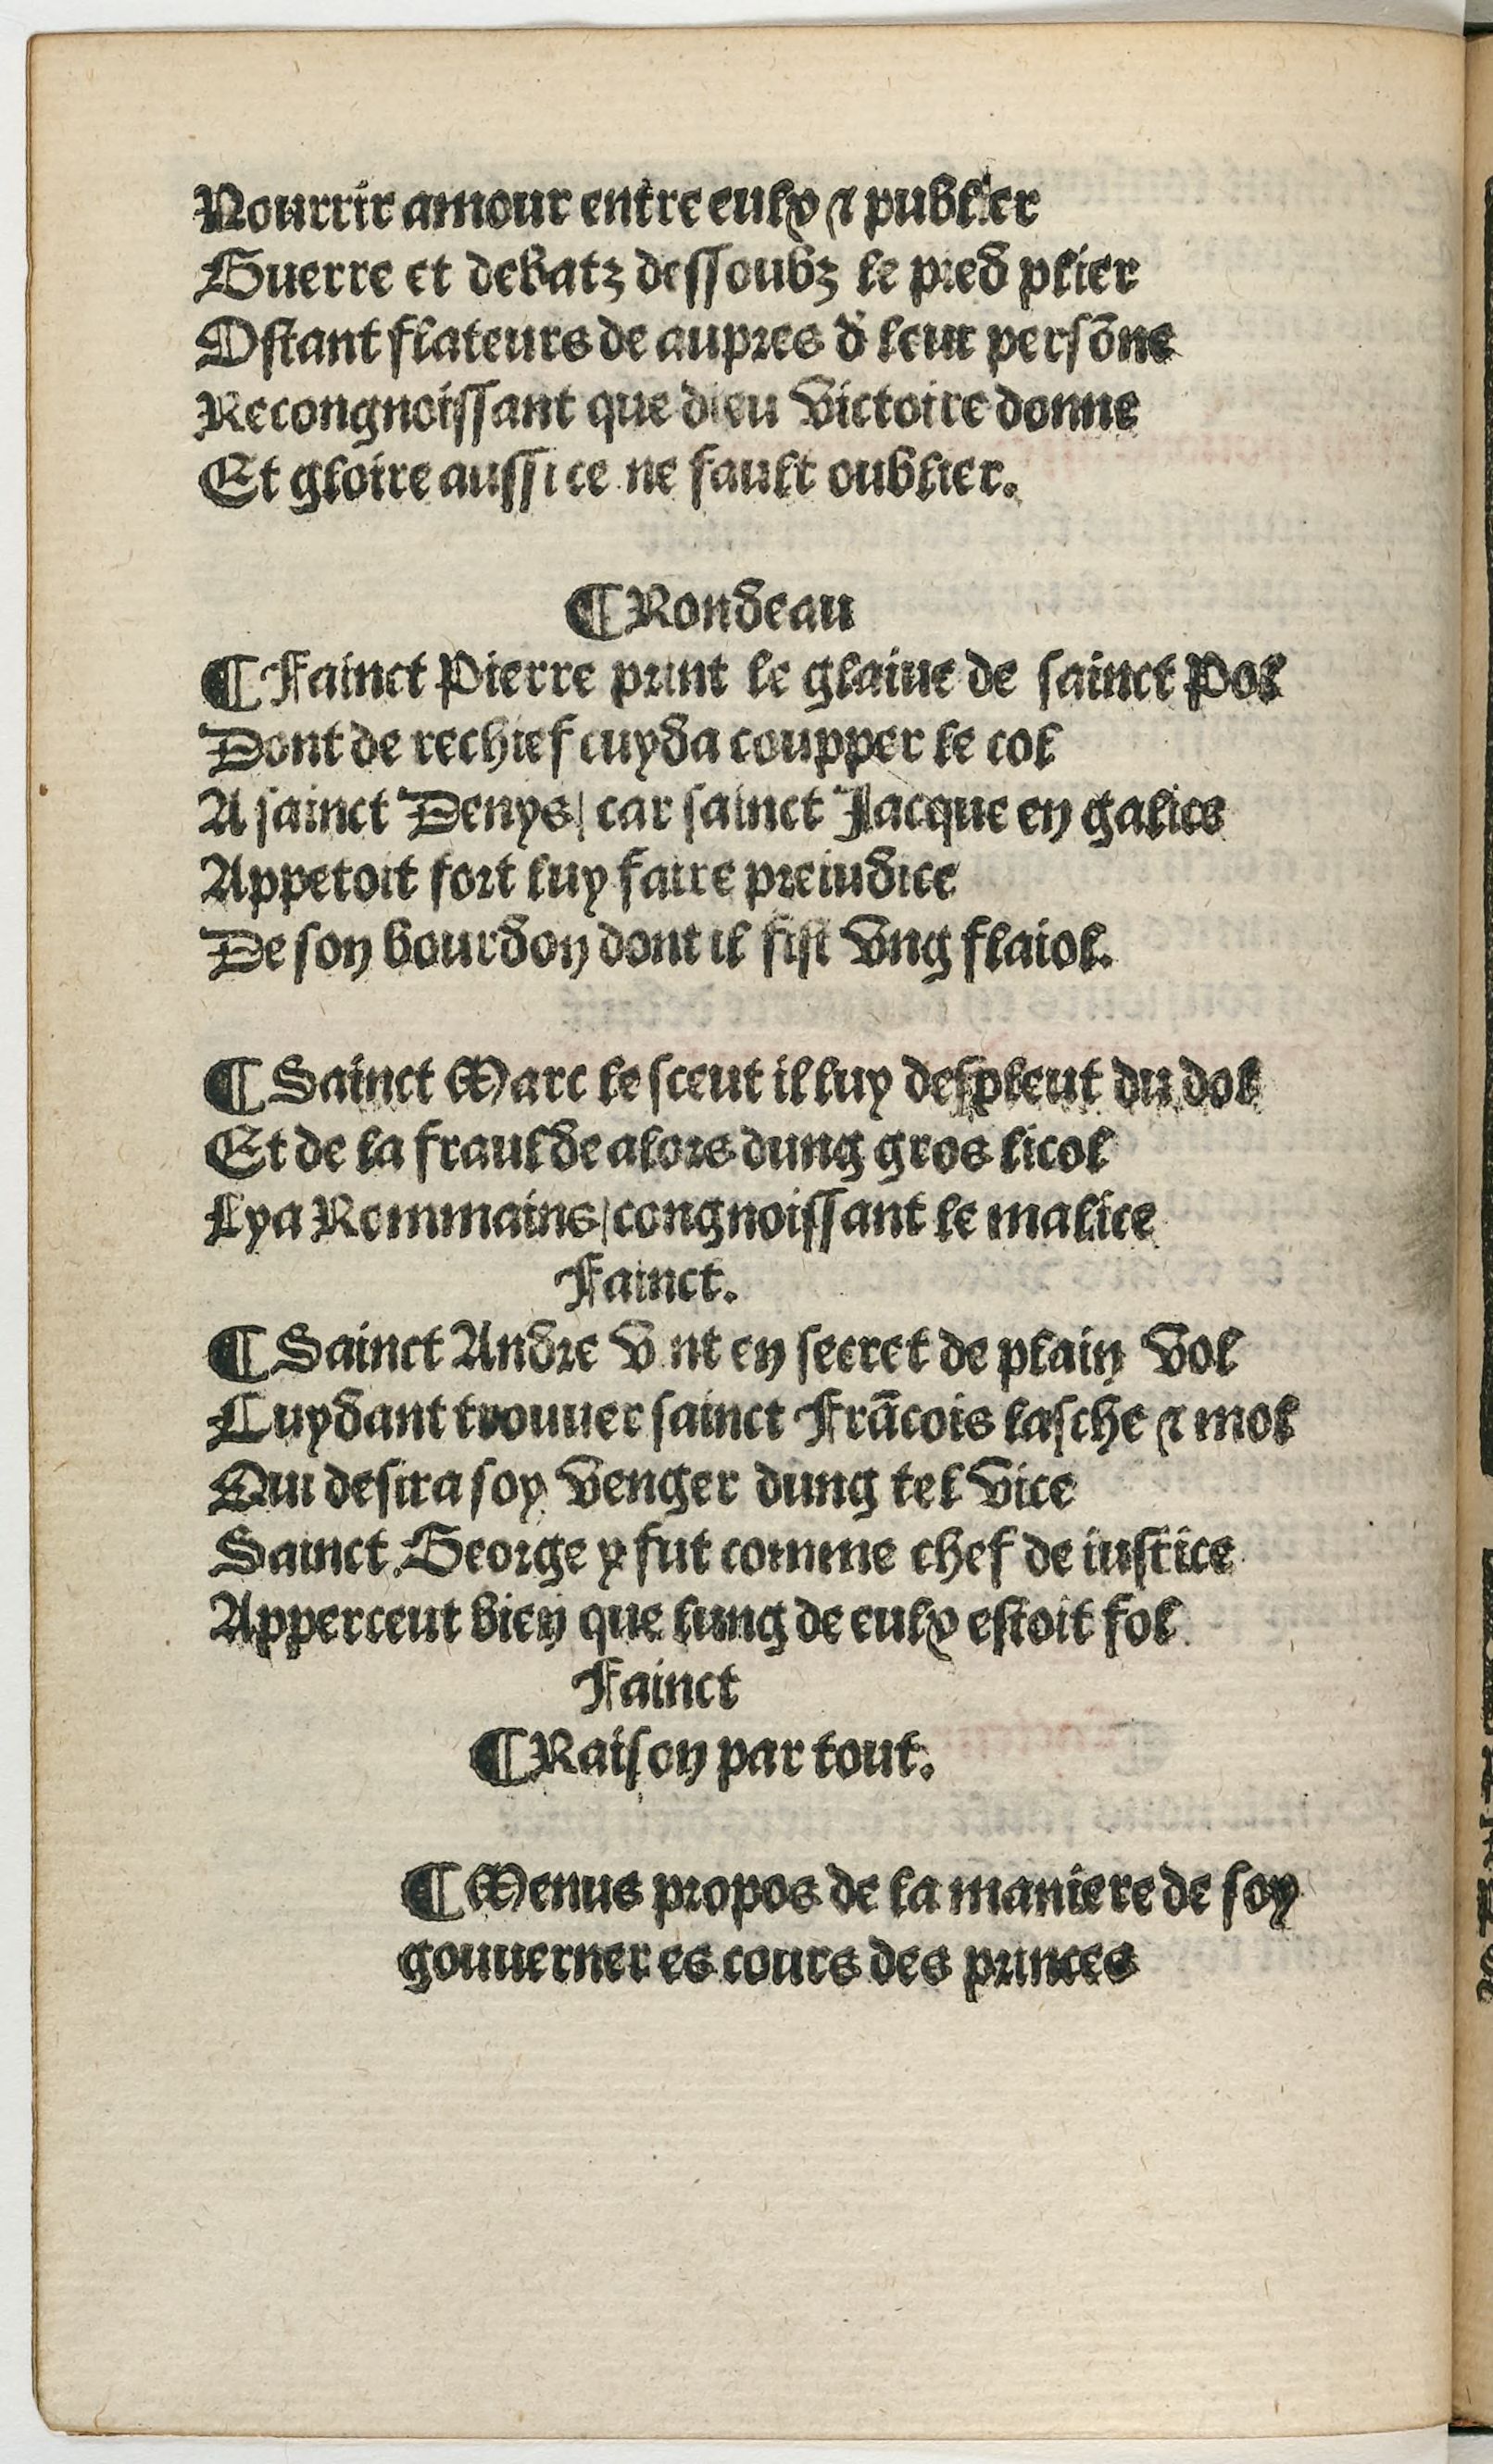 Nourrir amour entre eulx ⁊ publier
Guerre et debatz dessoubz le pied plier
Ostant flateurs de aupres d̄ leur persōne
Recongnoissant que dieu victoire donne
Et gloire aussi ce ne fault oublier.
¶ Rondeau
¶ Fainct Pierre print le glaiue de sainct Pol
Dont de rechief cuyda coupper le col
A sainct Denys/ car sainct Jacque en galice
Appetoit fort luy faire preiudice
De son bourdon dont il fist vng flaiol.
¶ Sainct Marc le sceut il luy despleut du dol
Et de la fraulde alors dung gros licol
Lya Rommains/ congnoissant le malice
Fainct.
¶ Sainct Andre v nt en secret de plain vol
Cuydant trouuer sainct Frācois lasche ⁊ mol
Qui desira soy venger dung tel vice
Sainct George y fut comme chef de iustice
Apperceut bien que lung de eulx estoit fol
Fainct
¶ Raison par tout.
¶ Menus propos de la maniere de soy
gouuerner es cours des princes